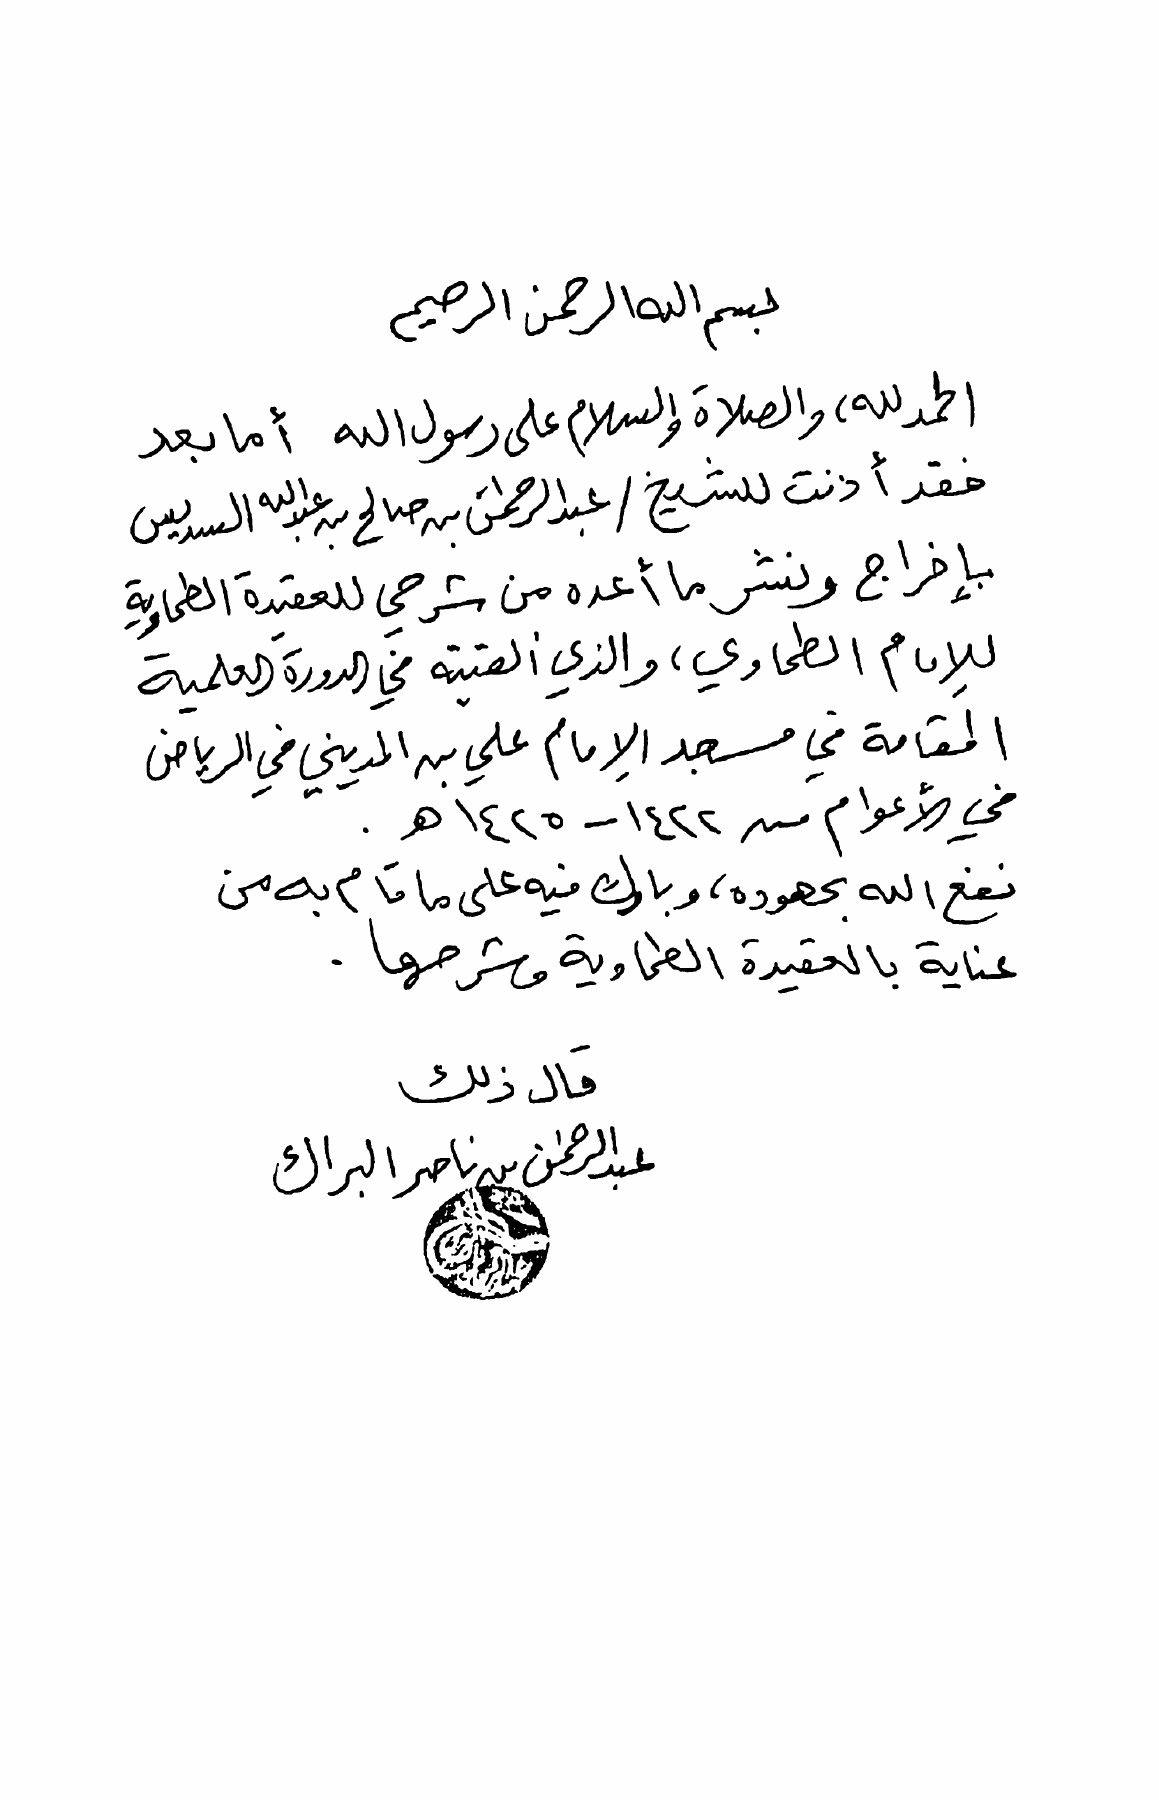 بسم الله الرحمن الرحيم
الحمد لله، والصلاة والسلام على رسول الله أما بعد
فقد أذنت للشيخ / عبدالرحمن بن صالح بن عبدالله السديس
بإخراج ونشر ما أعده من شرحي للعقيدة الطحاوية
للإمام الطحاوي، والذي ألقيته في الدورة العلمية
المقامة في مسجد الإمام علي بن المديني في الرياض
في الأعوام من ١٤٢٢ – ١٤٢٥ هـ .
نفع الله بجهوده، وبارك فيه على ما قام به من
عناية بالعقيدة الطحاوية وشرحها .
قال ذلك
عبدالرحمن بن ناصر البراك